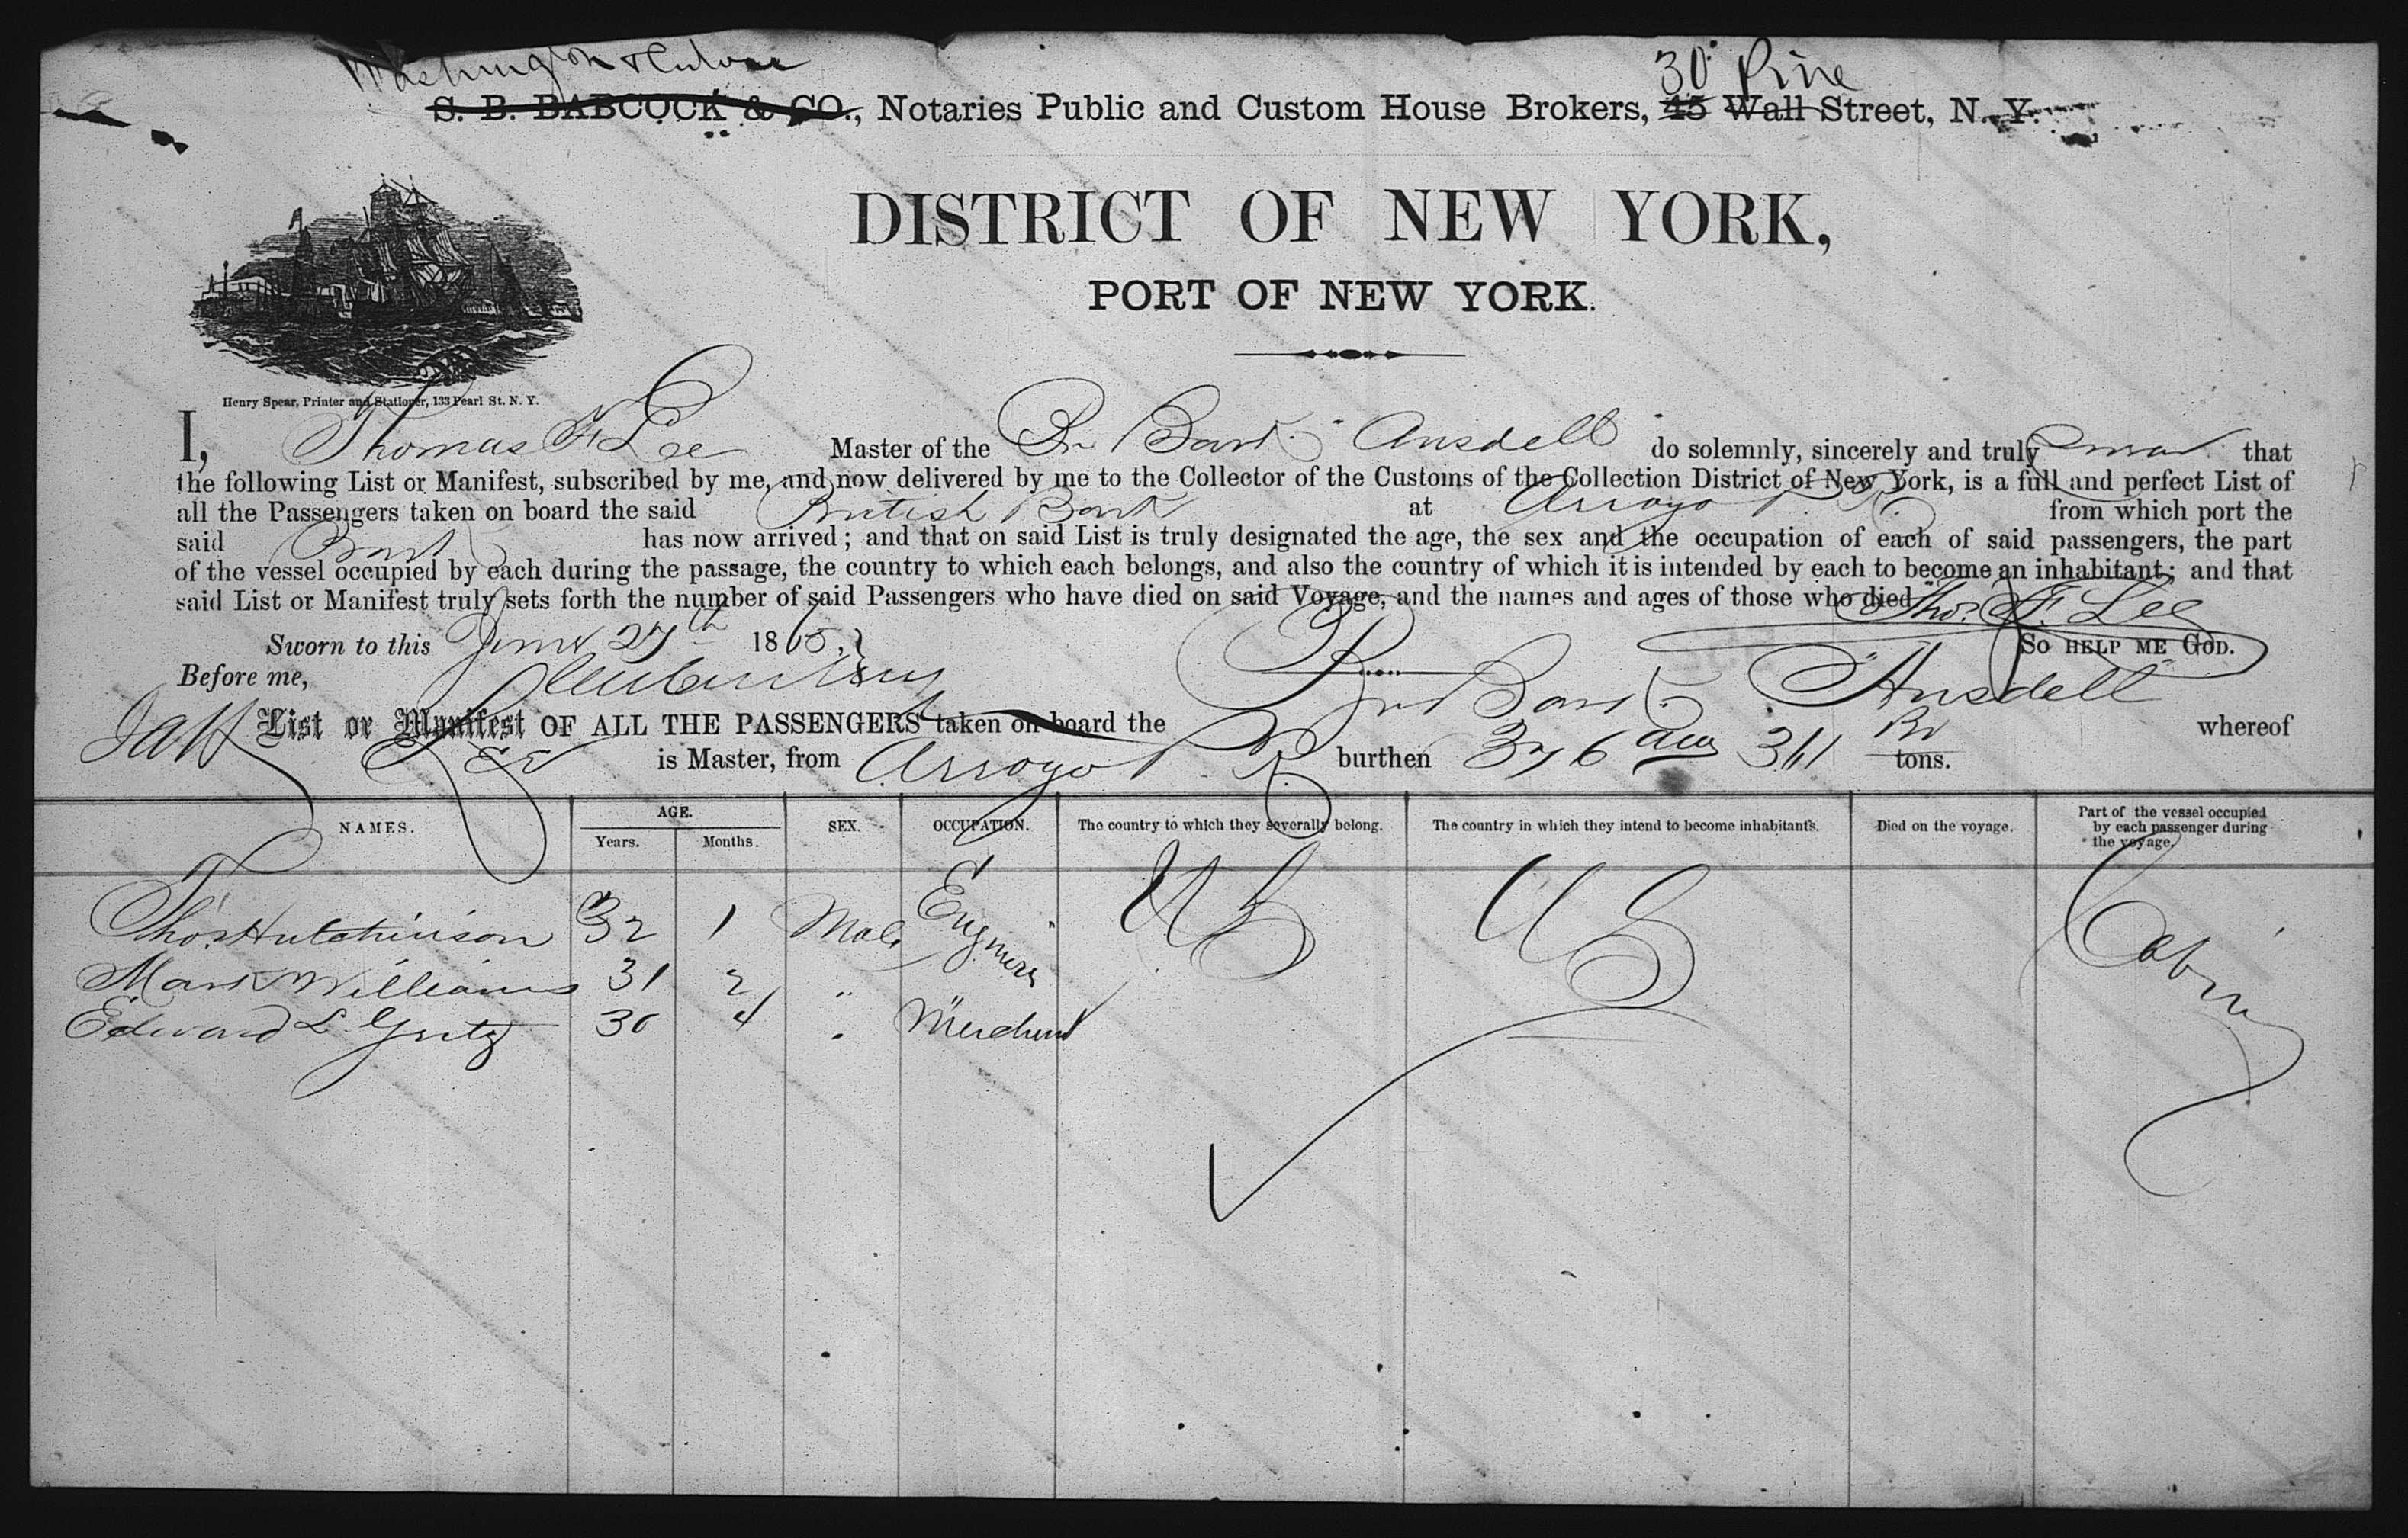 Washington & Culver 30 Pine
S. B. BABCOCK & CO., Notaries Public and Custom House Brokers, 45 Wall Street, N. Y.
DISTRICT OF NEW YORK,
PORT OF NEW YORK.
Henry Spear, Printer and Stationer, 133 Pearl St. N. Y.
I, Thomas F. Lee Master of the Br Bark "Ansdell" do solemnly, sincerely and truly swear that
the following List or Manifest, subscribed by me, and now delivered by me to the Collector of the Customs of the Collection District of New York, is a full and perfect List of
all the Passengers taken on board the said British Bark at Arroyo P. R. from which port the
said Bark has now arrived; and that on said List is truly designated the age, the sex and the occupation of each of said passengers, the part
of the vessel occupied by each during the passage, the country to which each belongs, and also the country of which it is intended by each to become an inhabitant; and that
said List or Manifest truly sets forth the number of said Passengers who have died on said Voyage, and the names and ages of those who died.
Thos. F. Lee
Sworn to this June 27th 1865. SO HELP ME GOD.
Before me,
List or Manifest OF ALL THE PASSENGERS taken on board the Br Bark "Ansdell" whereof
Lee is Master, from Arroyo P. R. burthen 376 361 Br tons.
NAMES. AGE. Years. Months. SEX. OCCUPATION. The country to which they severally belong. The country in which they intend to become inhabitants. Died on the voyage. Part of the vessel occupied by each passenger during the voyage.
Thos. Hutchinson 32 1 Male Engineer U S U S Cabin
Mark Williams 31 2 " "
Edward L. Gritz 30 4 " Merchant